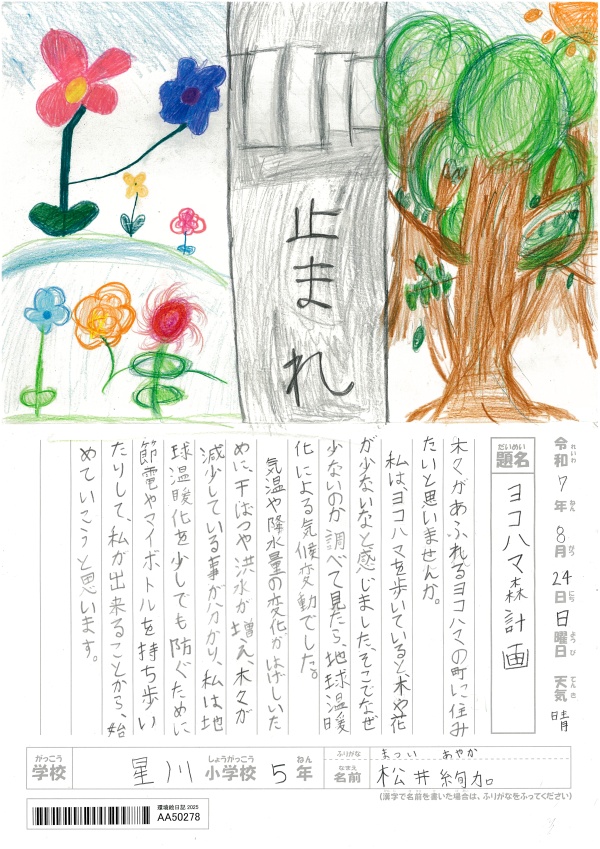 止まれ
令和7年8月24日日曜日 天気 晴
れいわ ねん がつ にち ようび てんき
だいめい
題名 ヨコハマ森計画
木々があふれるヨコハマの町に住み
たいと思いませんか。
私は、ヨコハマを歩いていると、木や花
が少ないなと感じました。そこでなぜ
少ないのか調べて見たら、地球温暖
化による気候変動でした。
気温や降水量の変化がはげしいた
めに、干ばつや洪水が増え、木々が
減少している事が分かり、私は地
球温暖化を少しでも防ぐために
節電やマイボトルを持ち歩い
たりして、私が出来ることから、始
めていこうと思います。
がっこう しょうがっこう ねん
学校 星川小学校 5年
ふりがな まつい あやか
なまえ
名前 松井絢加
(漢字で名前を書いた場合は、ふりがなをふってください)
環境絵日記 2025
AA50278